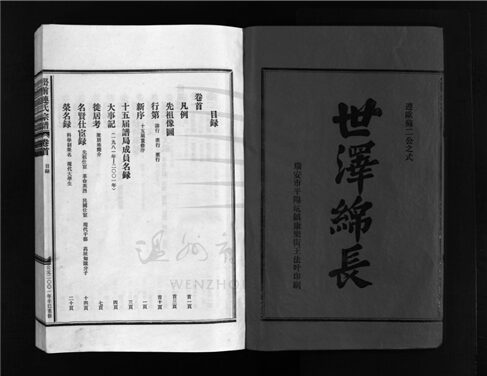 遵歐蘇二公之式
世澤綿長
瑞安市平陽坑鎮康樂街王法叶印刷
目錄
卷首
凡例 首一頁
先祖像圖 首三頁
行第 首十頁
新序 十五屆重修序 一頁
十五屆譜局成員名錄 三頁
大事記 一九八一年至二〇〇一年 四頁
徙居考 七頁
名賢仕宦錄 十四頁
榮名錄 二十頁
氏宗譜 卷首 目錄
公元二〇〇一年辛巳重修
WENZHO